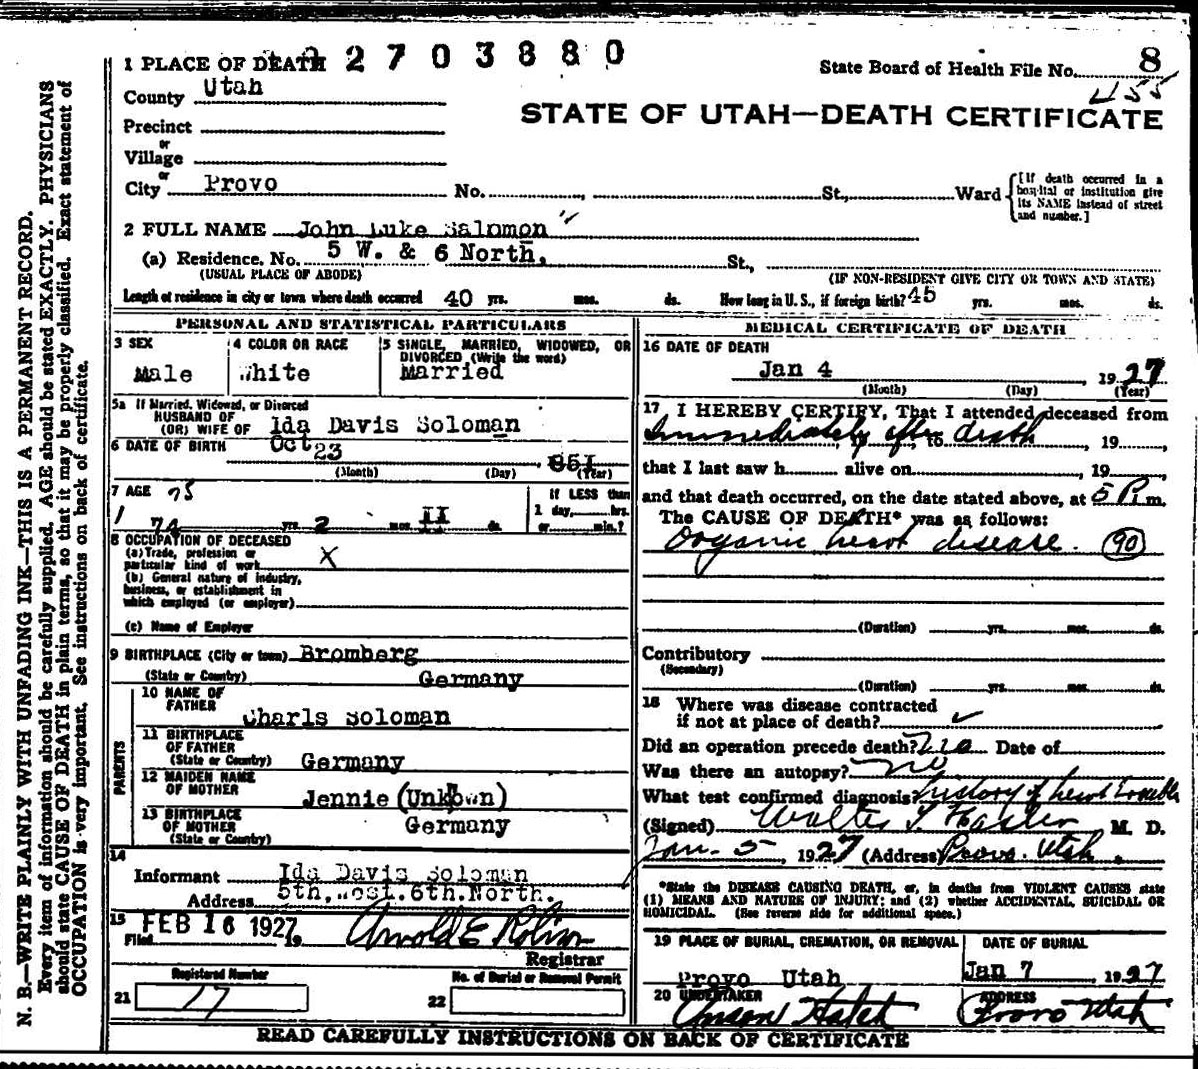 1 PLACE OF DEATH 2 7 0 3 8 8 0
State Board of Health File No. 8
455
County Utah
STATE OF UTAH—DEATH CERTIFICATE
Precinct
or
Village
or
City Provo No. St., Ward
[If death occurred in a hospital or institution give its NAME instead of street and number.]
2 FULL NAME John Luke Salomon
(a) Residence. No. 5 W. & 6 North, St.,
(USUAL PLACE OF ABODE) (IF NON-RESIDENT GIVE CITY OR TOWN AND STATE)
Length of residence in city or town where death occurred 40 yrs. mos. ds. How long in U. S., if foreign birth? 45 yrs. mos. ds.
PERSONAL AND STATISTICAL PARTICULARS
3 SEX
Male
4 COLOR OR RACE
White
5 SINGLE, MARRIED, WIDOWED, OR DIVORCED (Write the word)
Married
5a If Married, Widowed, or Divorced
HUSBAND OF
(OR) WIFE OF Ida Davis Soloman
6 DATE OF BIRTH Oct 23, 851
(Month) (Day) (Year)
7 AGE 75
74 yrs. 2 mos. II ds.
If LESS than
1 day, hrs.
or min.?
8 OCCUPATION OF DECEASED
(a) Trade, profession or
particular kind of work X
(b) General nature of industry,
business, or establishment in
which employed (or employer)
(c) Name of Employer
9 BIRTHPLACE (City or town) Bromberg
(State or Country) Germany
PARENTS
10 NAME OF
FATHER Charls Soloman
11 BIRTHPLACE
OF FATHER
(State or Country) Germany
12 MAIDEN NAME
OF MOTHER Jennie (Unkown)
13 BIRTHPLACE
OF MOTHER Germany
(State or Country)
14
Informant Ida Davis Soloman
Address 5th, West. 6th. North.
15 FEB 16 1927
Filed 19 Arnold E
Registrar
Registered Number
21 17
No. of Burial or Removal Permit
22
MEDICAL CERTIFICATE OF DEATH
16 DATE OF DEATH
Jan 4, 1927
(Month) (Day) (Year)
17 I HEREBY CERTIFY, That I attended deceased from
Immediately after to death, 19
that I last saw h alive on 19
and that death occurred, on the date stated above, at 5 P.m.
The CAUSE OF DEATH* was as follows:
Organic heart disease. 90
(Duration) yrs. mos. ds.
Contributory
(Secondary)
(Duration) yrs. mos. ds.
18 Where was disease contracted
if not at place of death? ✓
Did an operation precede death? No Date of
Was there an autopsy? no
What test confirmed diagnosis history of heart trouble
(Signed) Walter T. Hasler M. D.
Jan. 5, 1927 (Address) Provo. Utah.
*State the DISEASE CAUSING DEATH, or, in deaths from VIOLENT CAUSES state
(1) MEANS AND NATURE OF INJURY; and (2) whether ACCIDENTAL, SUICIDAL OR
HOMICIDAL. (See reverse side for additional space.)
19 PLACE OF BURIAL, CREMATION, OR REMOVAL
Provo Utah
DATE OF BURIAL
Jan 7 1927
20 UNDERTAKER
Anson Hatch
ADDRESS
Provo Utah
READ CAREFULLY INSTRUCTIONS ON BACK OF CERTIFICATE
N. B.—WRITE PLAINLY WITH UNFADING INK—THIS IS A PERMANENT RECORD.
Every item of information should be carefully supplied. AGE should be stated EXACTLY. PHYSICIANS
should state CAUSE OF DEATH in plain terms, so that it may be properly classified. Exact statement of
OCCUPATION is very important. See instructions on back of certificate.